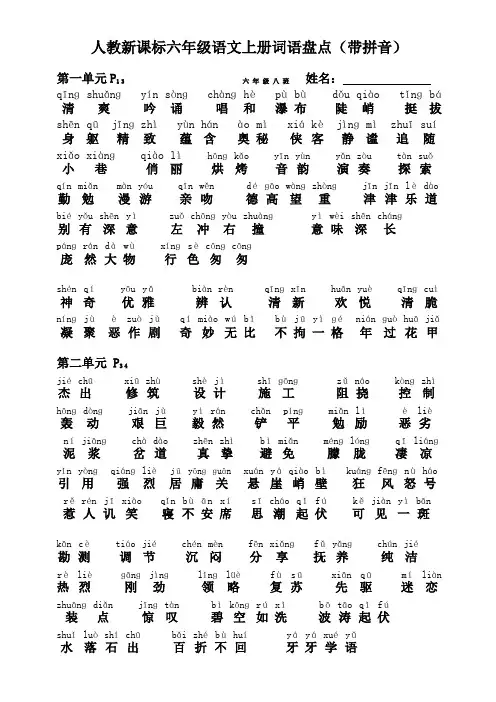 人教新课标六年级语文上册词语盘点（带拼音）
第一单元P₁₃ 六年级八班 姓名：
qīng shuǎng yín sòng chàng hè pù bù dǒu qiào tǐng bá
清爽 吟诵 唱和 瀑布 陡峭 挺拔
shēn qū jīng zhì yùn hán ào mì xiá kè jìng mì zhuī suí
身躯 精致 蕴含 奥秘 侠客 静谧 追随
xiǎo xiàng qiào lì hōng kǎo yīn yùn yǎn zòu tàn suǒ
小巷 俏丽 烘烤 音韵 演奏 探索
qín miǎn màn yóu qīn wěn dé gāo wàng zhòng jīn jīn lè dào
勤勉 漫游 亲吻 德高望重 津津乐道
bié yǒu shēn yì zuǒ chōng yòu zhuàng yì wèi shēn cháng
别有深意 左冲右撞 意味深长
páng rán dà wù xíng sè cōng cōng
庞然大物 行色匆匆
shén qí yōu yǎ biàn rèn qīng xīn huān yuè qīng cuì
神奇 优雅 辨认 清新 欢悦 清脆
níng jù è zuò jù qí miào wú bǐ bù jū yì gé nián guò huā jiǎ
凝聚 恶作剧 奇妙无比 不拘一格 年过花甲
第二单元 P₃₄
jié chū xiū zhù shè jì shī gōng zǔ náo kòng zhì
杰出 修筑 设计 施工 阻挠 控制
hōng dòng jiān jù yì rán chǎn píng miǎn lì è liè
轰动 艰巨 毅然 铲平 勉励 恶劣
ní jiāng chà dào zhēn zhì bì miǎn méng lóng qī liáng
泥浆 岔道 真挚 避免 朦胧 凄凉
yǐn yòng qiáng liè jū yōng guān xuán yá qiào bì kuáng fēng nù háo
引用 强烈 居庸关 悬崖峭壁 狂风怒号
rě rén jī xiào qǐn bù ān xí sī cháo qǐ fú kě jiàn yì bān
惹人讥笑 寝不安席 思潮起伏 可见一斑
kān cè tiáo jié chén mèn fēn xiǎng fǔ yǎng chún jié
勘测 调节 沉闷 分享 抚养 纯洁
rè liè gāng jìng lǐng lüè fù sū xiān qū mí liàn
热烈 刚劲 领略 复苏 先驱 迷恋
zhuāng diǎn jīng tàn bì kōng rú xǐ bō tāo qǐ fú
装点 惊叹 碧空如洗 波涛起伏
shuǐ luò shí chū bǎi zhé bù huí yá yá xué yǔ
水落石出 百折不回 牙牙学语